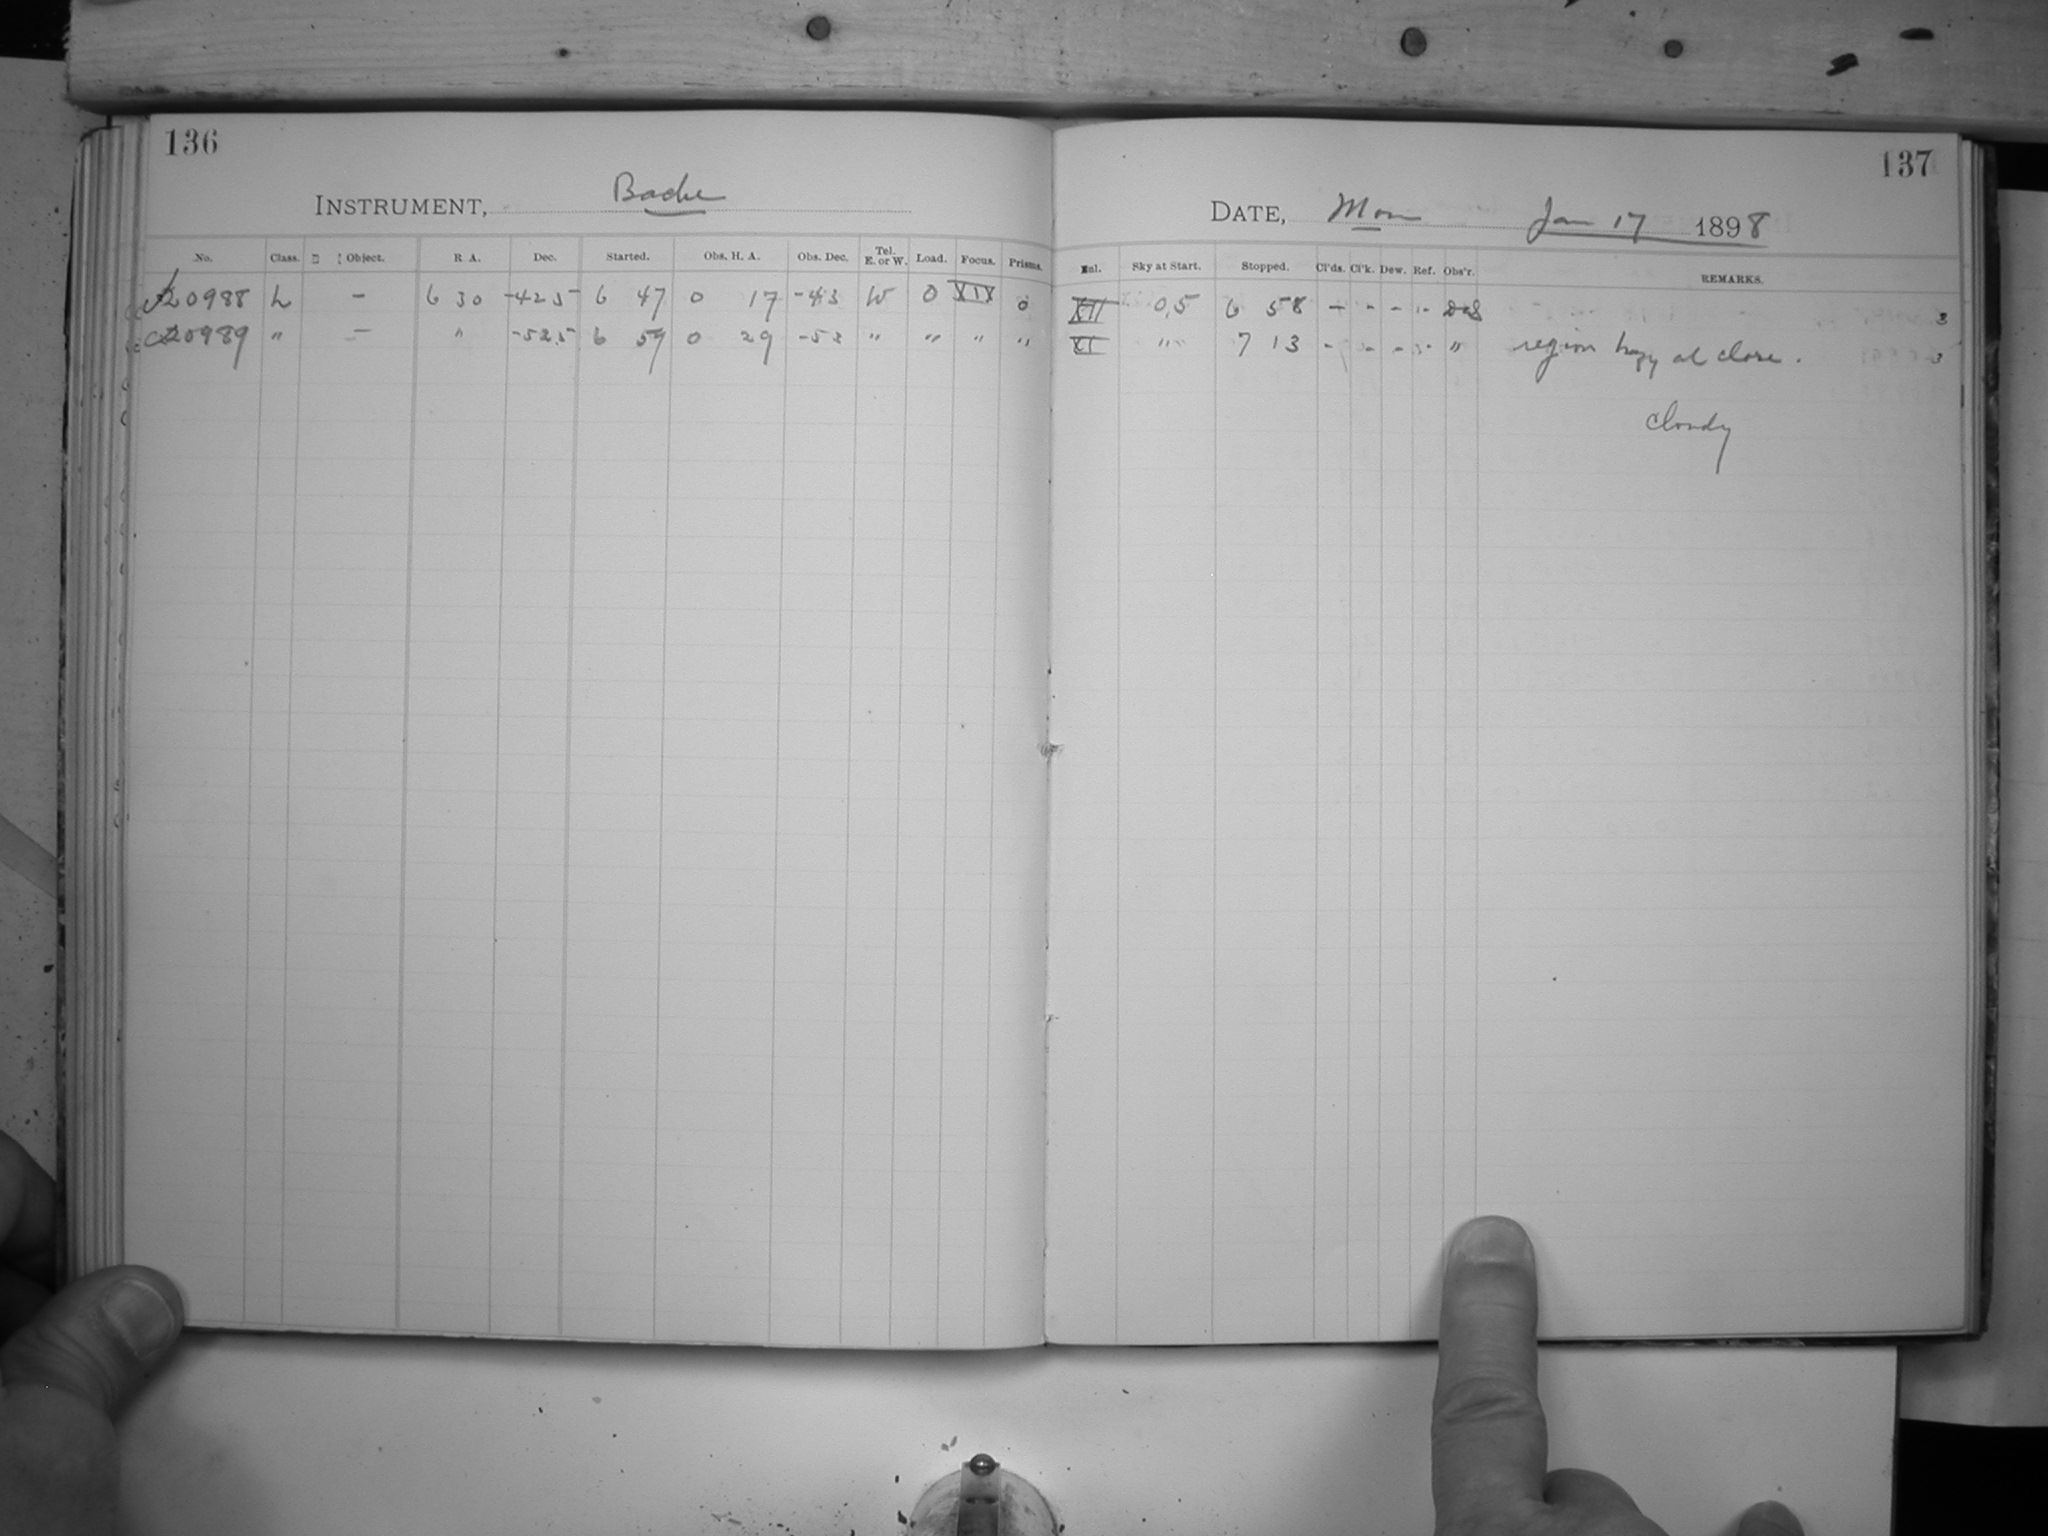 136
INSTRUMENT, Bache
No. Class. Object. R. A. Dec. Started. Obs. H. A. Obs. Dec. Tel. E. or W. Load. Focus. Prisms.
20988 L - 6 30 -42.5 6 47 0 17 -43 W 0 XIX 0
20989 " - " -52.5 6 59 0 29 -53 " " " "
137
DATE, Mon Jan 17 1898
Sky at Start. Stopped. Cl'ds. Cl'k. Dew. Ref. Obs'r. REMARKS.
XII 0,5 6 58 - - - " 3
XI " 7 13 - - - " " region hazy at close. 3
cloudy